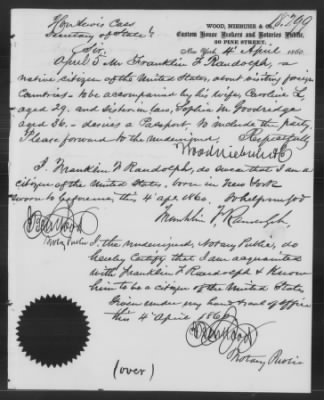 6,290
Hon Lewis Cass
Secretary of State
WOOD, NIEBUHR & Co.
Custom House Brokers and Notaries Public,
90 PINE STREET,
New York, 4th April 1860.
Sir,
April 5 Mr Franklin F Randolph, a
native citizen of the United States, about visiting foreign
Countries - to be accompanied by his wife Caroline L,
aged 29, and Sister in law, Sophia M Goodridge
aged 36, - desires a Passport, to include the party,
Please forward to the undersigned, Respectfully
Wood Niebuhr & Co
I, Franklin F Randolph, do swear that I am a
citizen of the United States, born in New York
sworn to before me, this 4 apl 1860. So help me God
Franklin F Randolph,
Notary Public
I, the undersigned, Notary Public, do
hereby Certify that I am acquainted
with Franklin F Randolph & Know
him to be a citizen of the United States
Given under my hand & seal of Office
this 4th April 1860
Notary Public
(over)